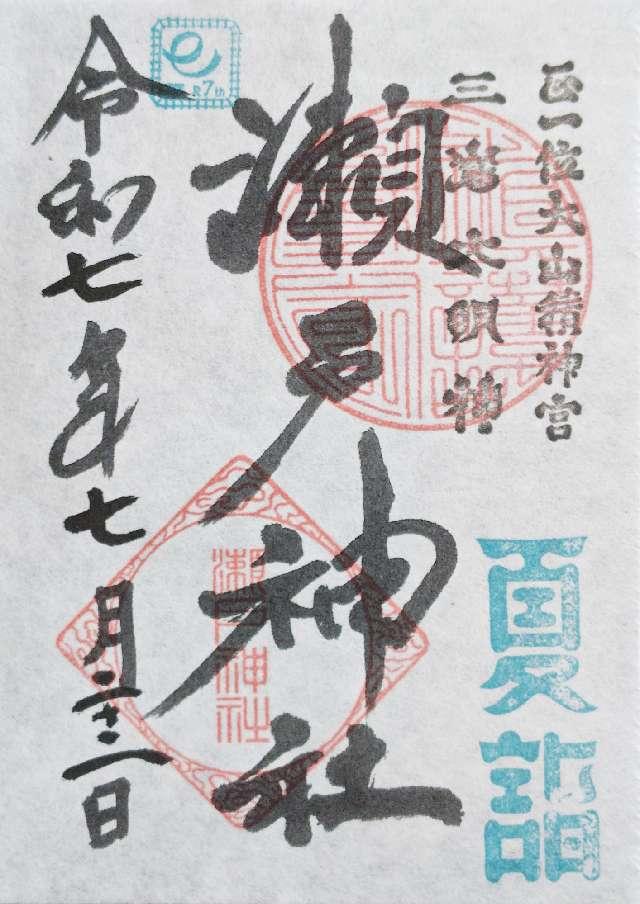 正一位大山積神宮
三嶌大明神
夏詣
瀬戸神社
瀬戸神社
令和七年七月二十二日
R7th